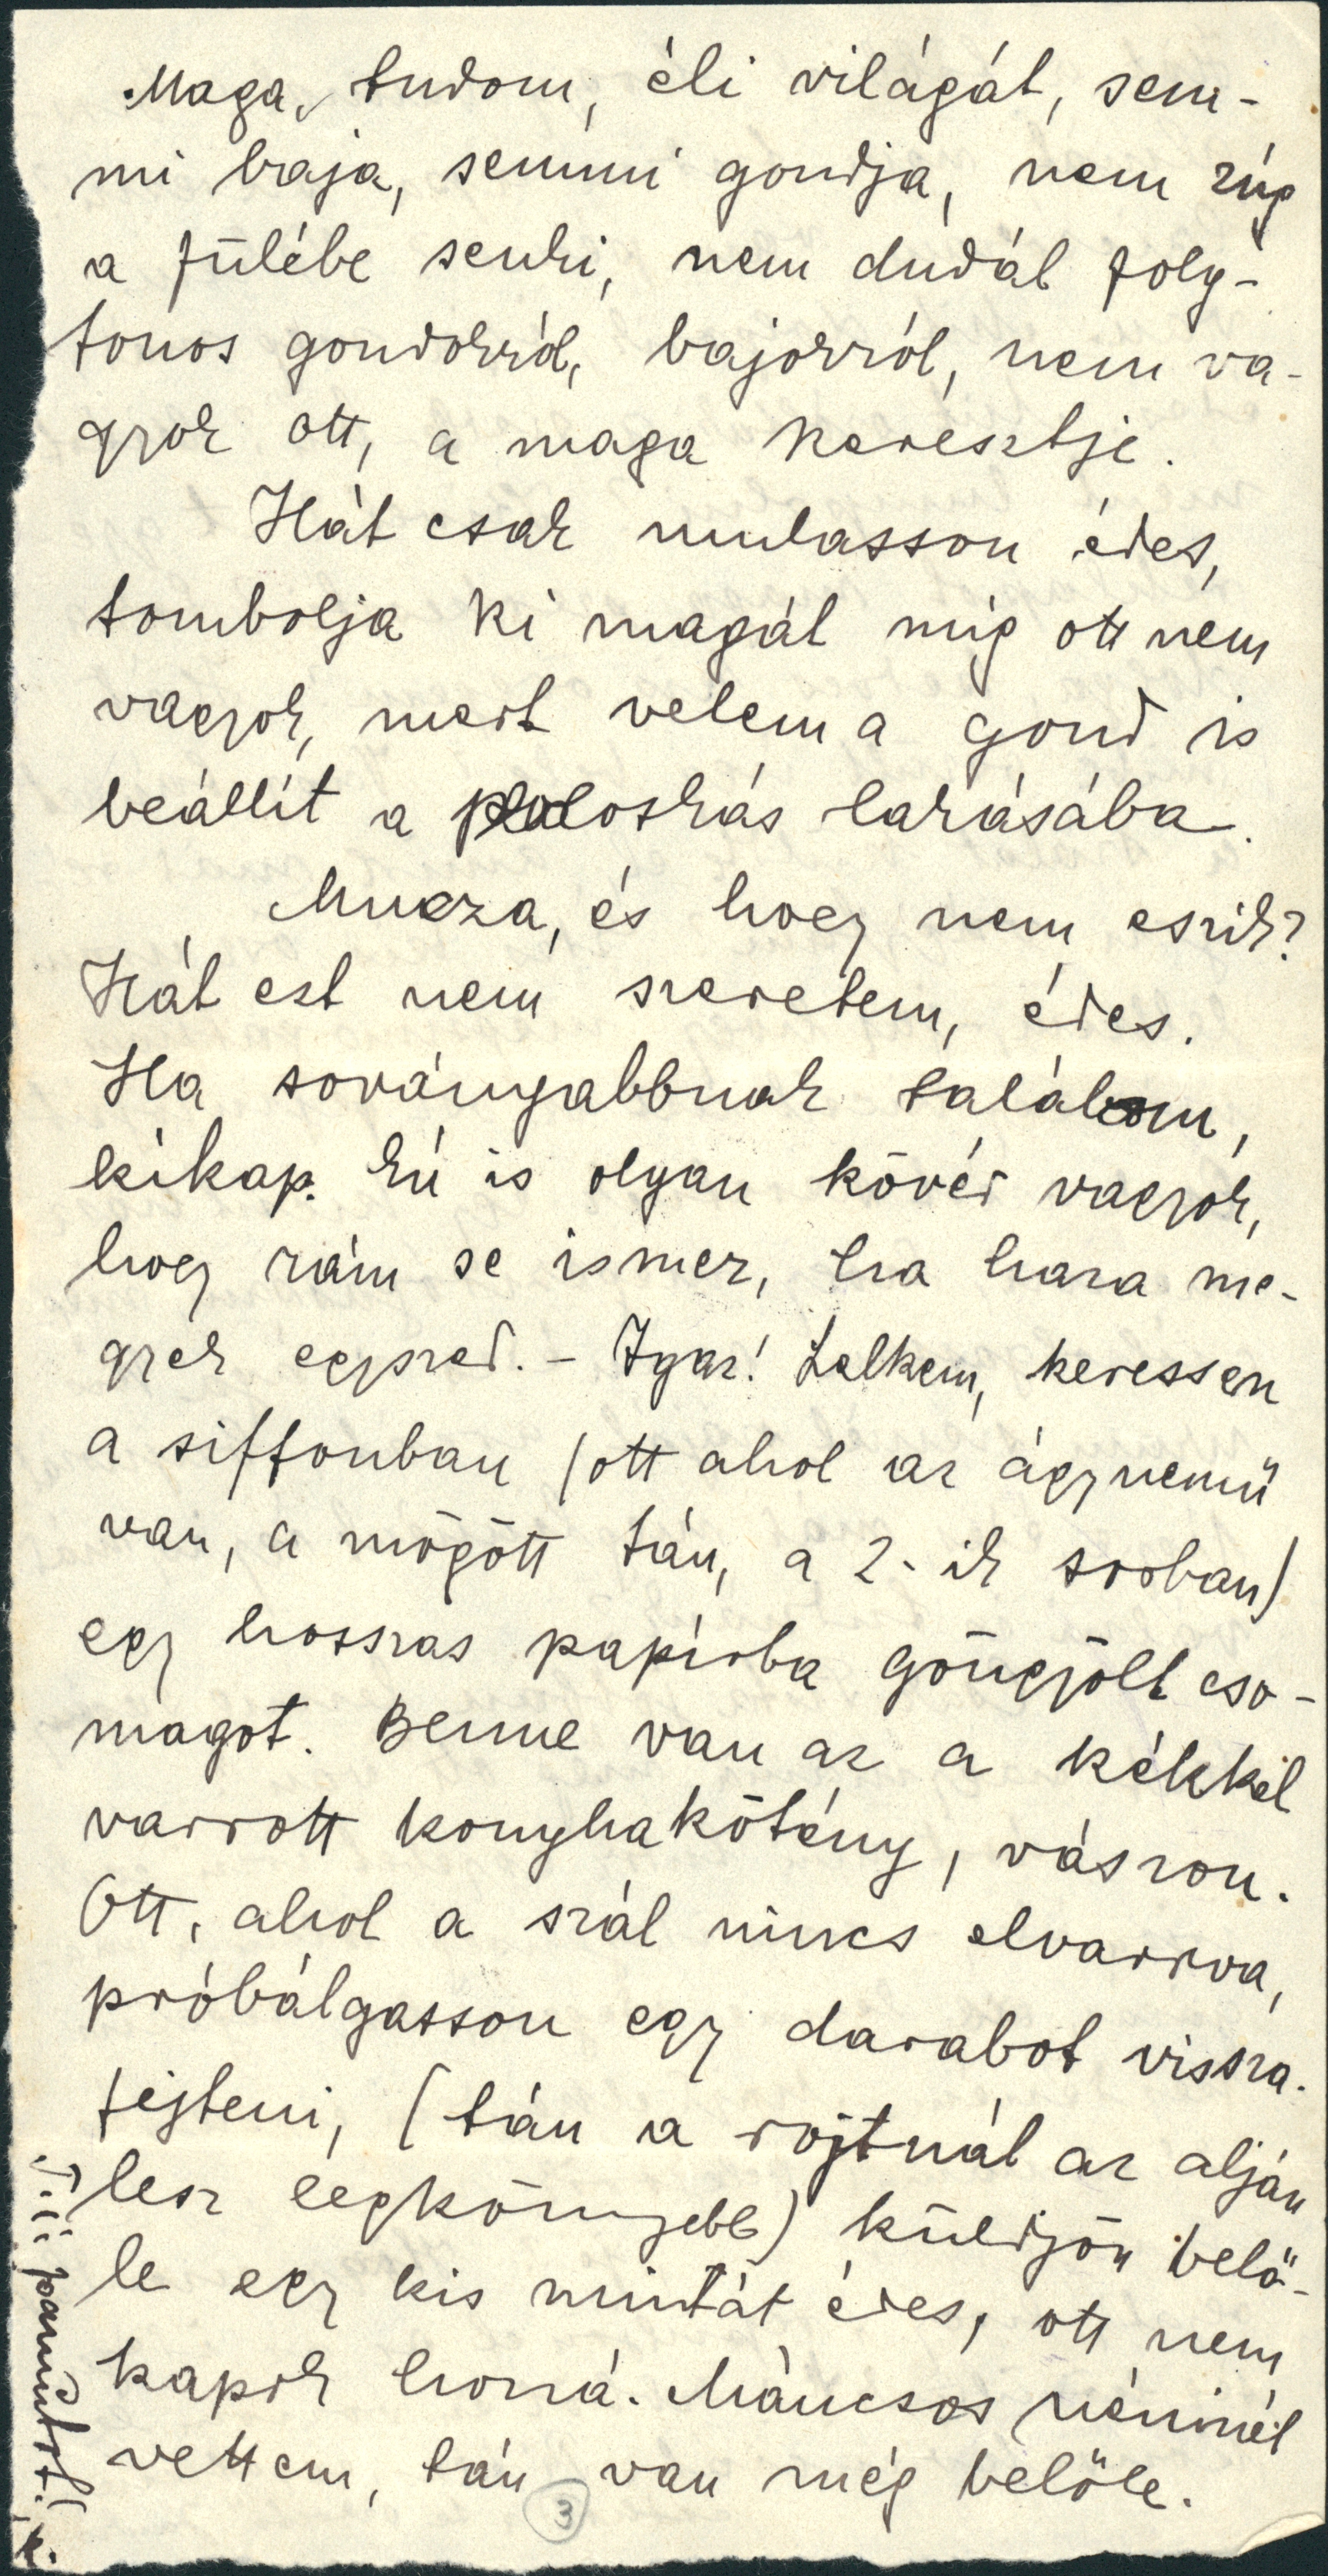 Maga, tudom, éli világát, sem-
mi baja, semmi gondja, nem zúg
a fülébe senki, nem dudál foly-
tonos gondokról, bajokról, nem va-
gyok ott, a maga keresztje.
Hát csak mulasson édes,
tombolja ki magát míg ott nem
vagyok, mert velem a gond is
beállít a poloskás lakásába.
Mucza, és hogy nem eszik?
Hát ezt nem szeretem, édes.
Ha soványabbnak találom,
kikap. Én is olyan kövér vagyok,
hogy rám se ismer, ha haza me-
gyek egyszer. - Igaz! Lelkem, keressen
a siffonban (ott ahol az ágynemű
van, a mögött tán, a 2-ik sorban)
egy hosszas papírba göngyölt cso-
magot. Benne van az a kékkel
varrott konyhakötény, vászon.
Ott, ahol a szál nincs elvarrva,
próbálgasson egy darabot vissza-
fejteni, (tán a rojtnál az alján
lesz legkönnyebb) küldjön belő-
le egy kis mintát édes, itt nem
kapok hozzá. Máncsos néninél
vettem, tán van még belőle.
3
pamutot!